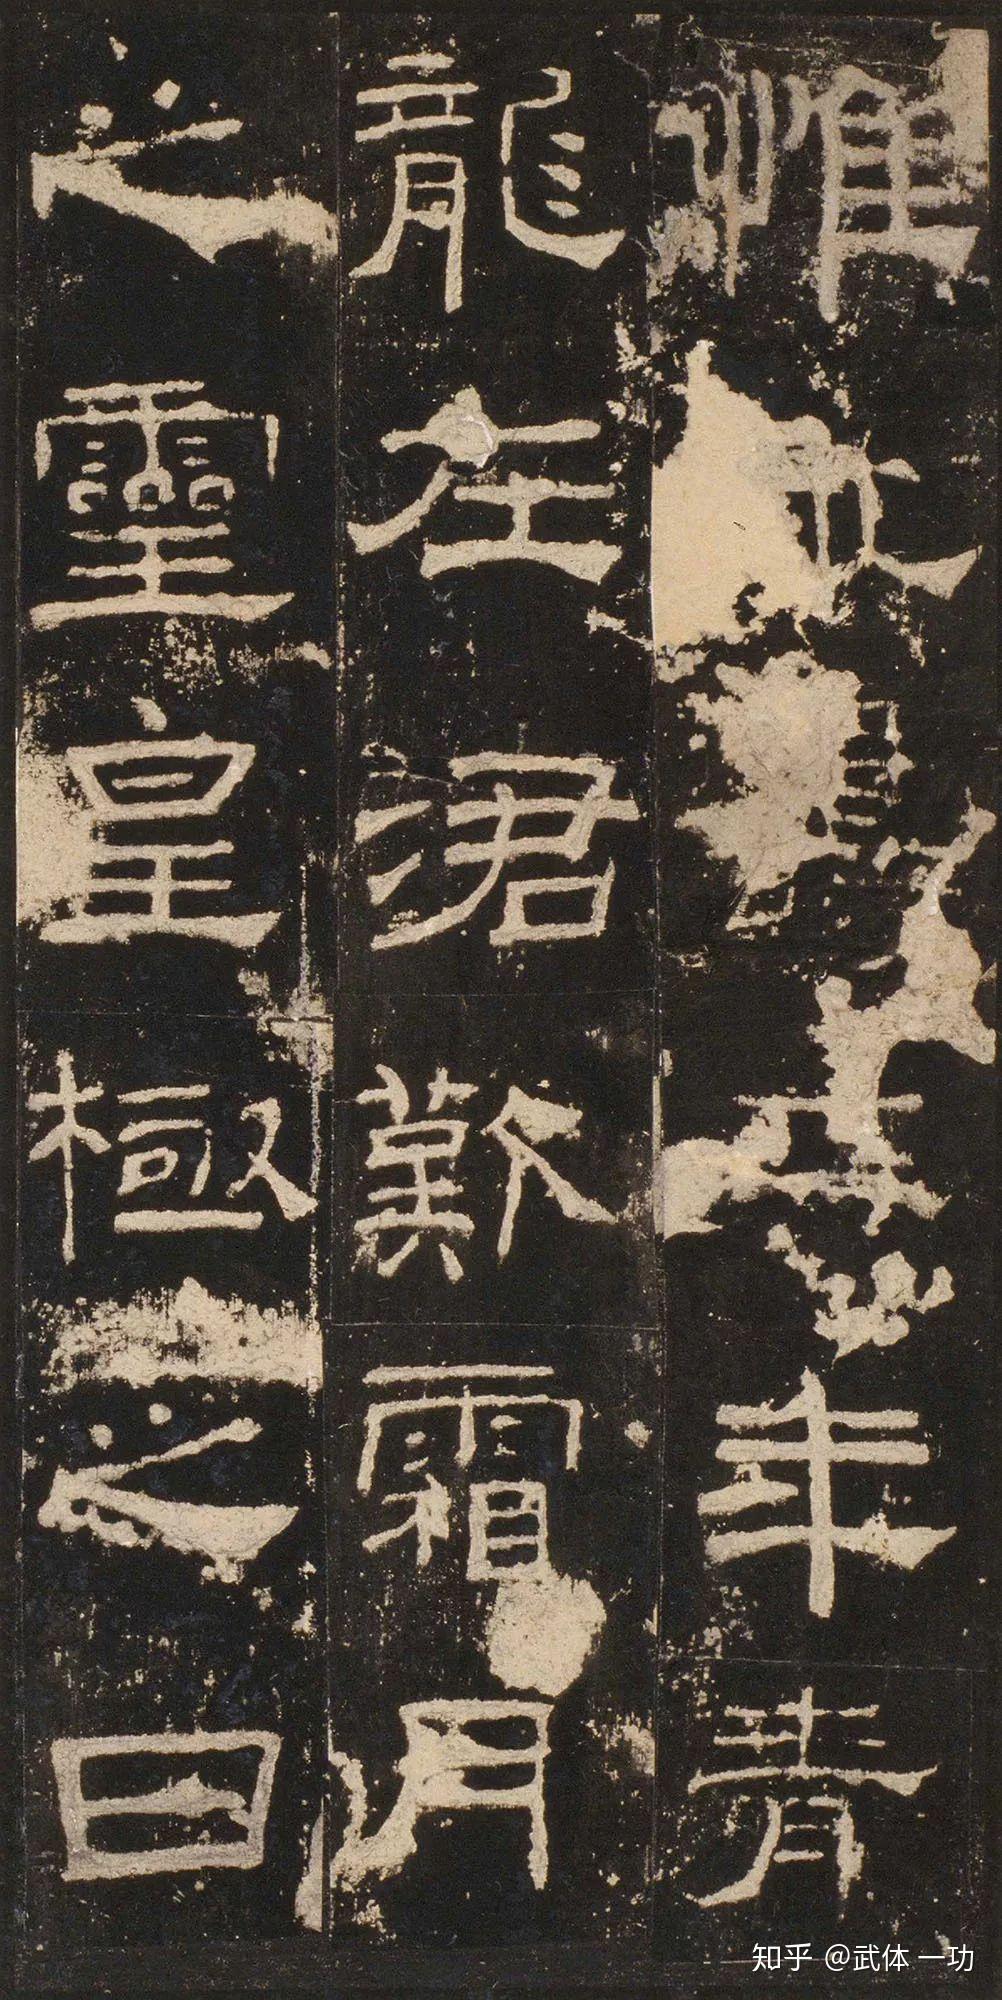 惟永壽二年青
龍在涒歎霜月
之靈皇極之日
知乎 @武体一功